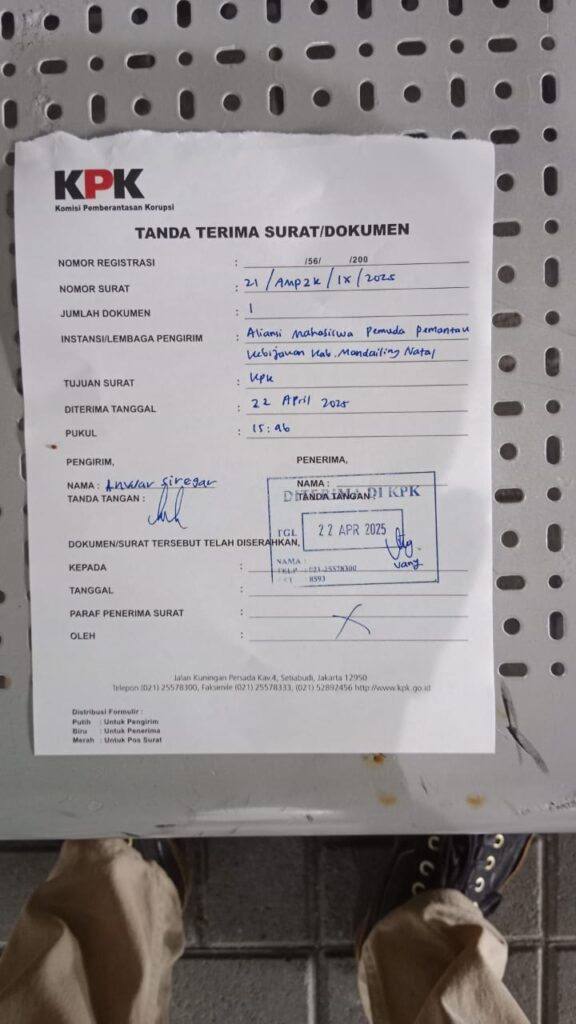 KPK
Komisi Pemberantasan Korupsi
TANDA TERIMA SURAT/DOKUMEN
NOMOR REGISTRASI : /56/ /200
NOMOR SURAT : 21/AMP2K/IX/2025
JUMLAH DOKUMEN : 1
INSTANSI/LEMBAGA PENGIRIM : Aliansi Mahasiswa Pemuda Pemantau
Kebijakan Kab. Mandailing Natal
TUJUAN SURAT : KPK
DITERIMA TANGGAL : 22 April 2025
PUKUL : 15:46
PENGIRIM, PENERIMA,
NAMA : Anwar Siregar NAMA :
TANDA TANGAN : TANDA TANGAN :
DITERIMA DI KPK
TGL 22 APR 2025
NAMA :
TELP : 021-25578300
8593
DOKUMEN/SURAT TERSEBUT TELAH DISERAHKAN,
KEPADA :
TANGGAL :
PARAF PENERIMA SURAT :
OLEH :
Jalan Kuningan Persada Kav.4, Setiabudi, Jakarta 12950
Telepon (021) 25578300, Faksimile (021) 25578333, (021) 52892456 http://www.kpk.go.id
Distribusi Formulir :
Putih : Untuk Pengirim
Biru : Untuk Penerima
Merah : Untuk Pos Surat